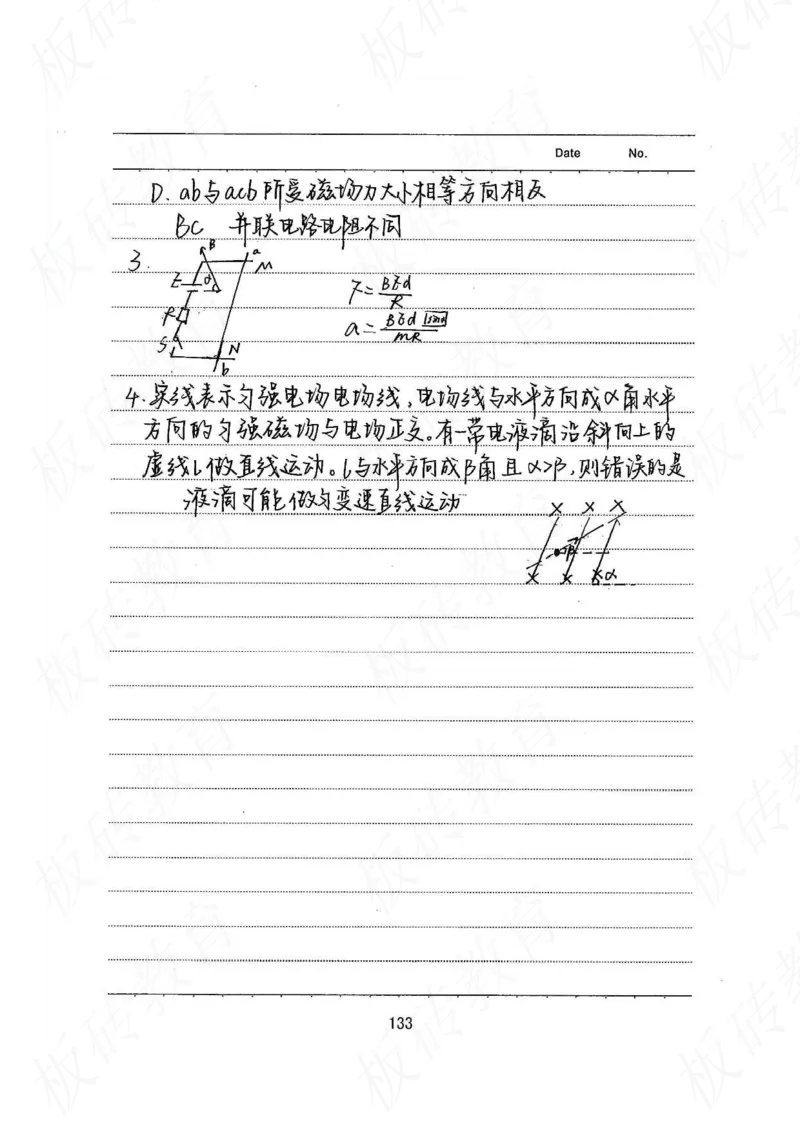 Date No.
D. ab与acb所受磁场力大小相等方向相反
BC 并联电路电阻不同
3.
B
a
M
E
θ
R
S
N
b
F=BEd/R
a=BEd sinθ/mR
4. 实线表示匀强电场电场线,电场线与水平方向成α角水平
方向的匀强磁场与电场正交。有一带电液滴沿斜向上的
虚线L做直线运动。L与水平方向成β角且α>β,则错误的是
液滴可能做匀变速直线运动
× × ×
β
× × × α
133
板砖教育